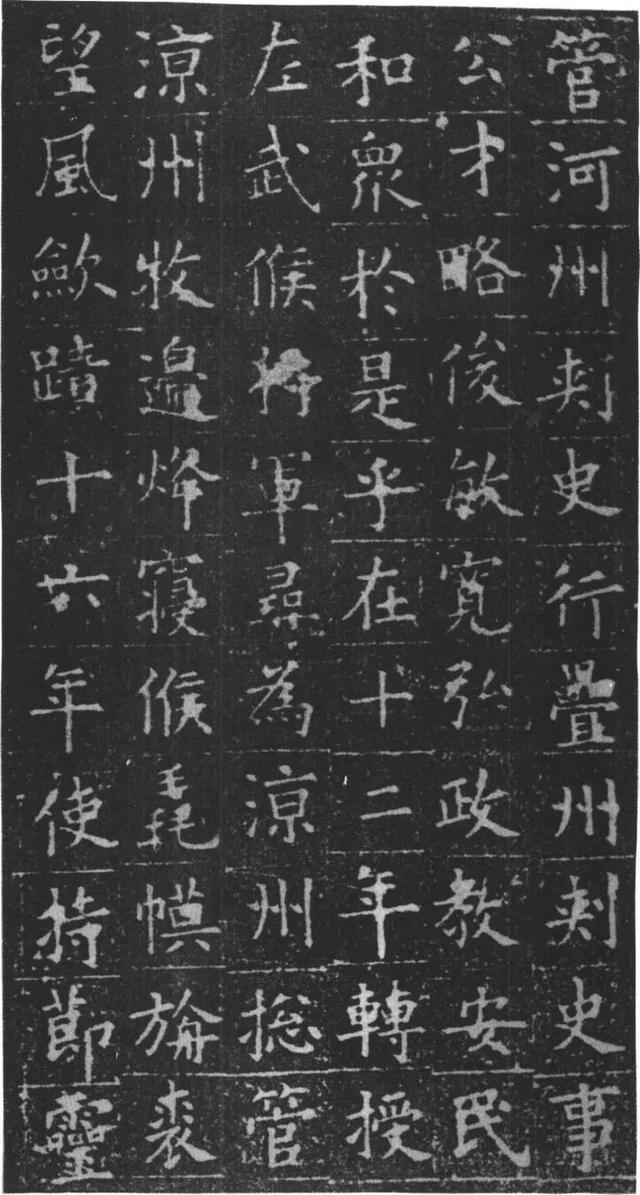 管河州刺史行疊州刺史事
公才略俊敏寬弘政教安民
和衆於是乎在十二年轉授
左武候將軍尋為涼州捴管
涼州牧邊烽寢候毳幙旃裘
望風歛蹟十六年使持節靈